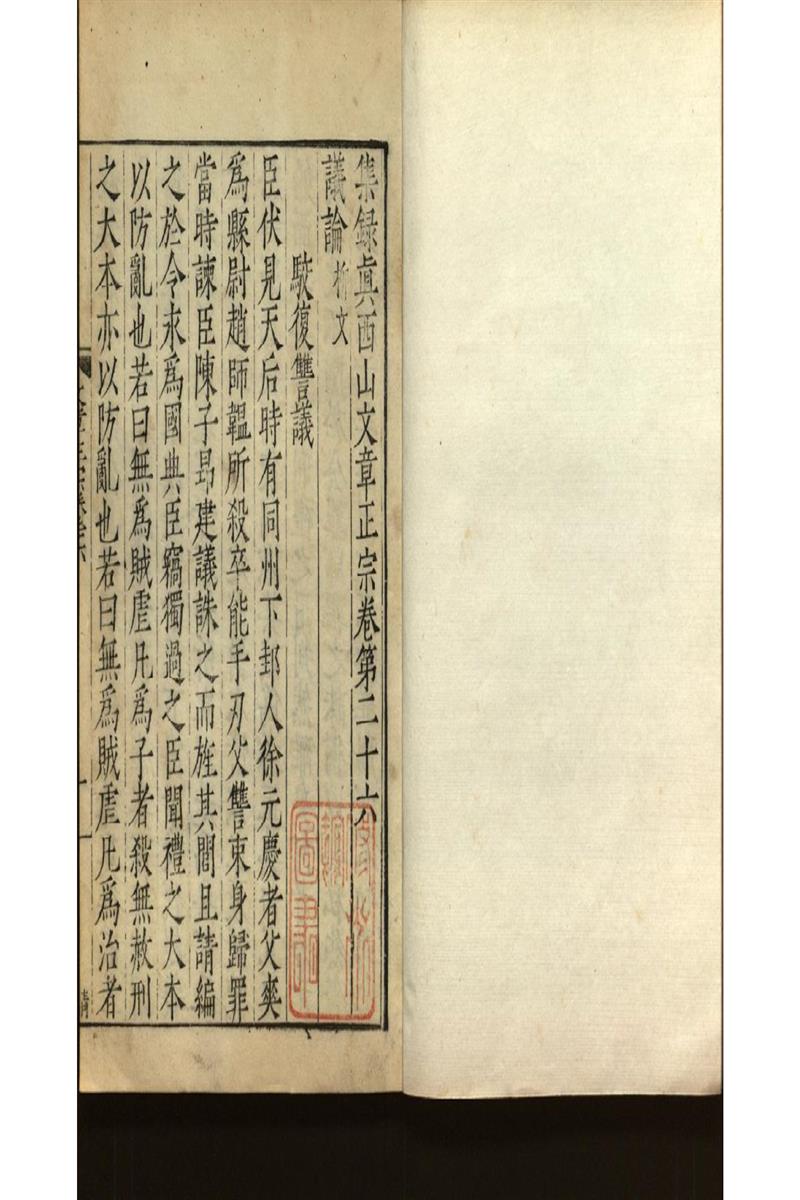 集録真西山文章正宗卷第二十六
議論 析文
駮復讐議
臣伏見天后時有同州下邽人徐元慶者父爽
爲縣尉趙師韞所殺卒能手刃父讐束身歸罪
當時諫臣陳子昂建議誅之而旌其閭且請編
之於令永爲國典臣竊獨過之臣聞禮之大本
以防亂也若曰無爲賊虐凡爲子者殺無赦刑
之大本亦以防亂也若曰無爲賊虐凡爲治者